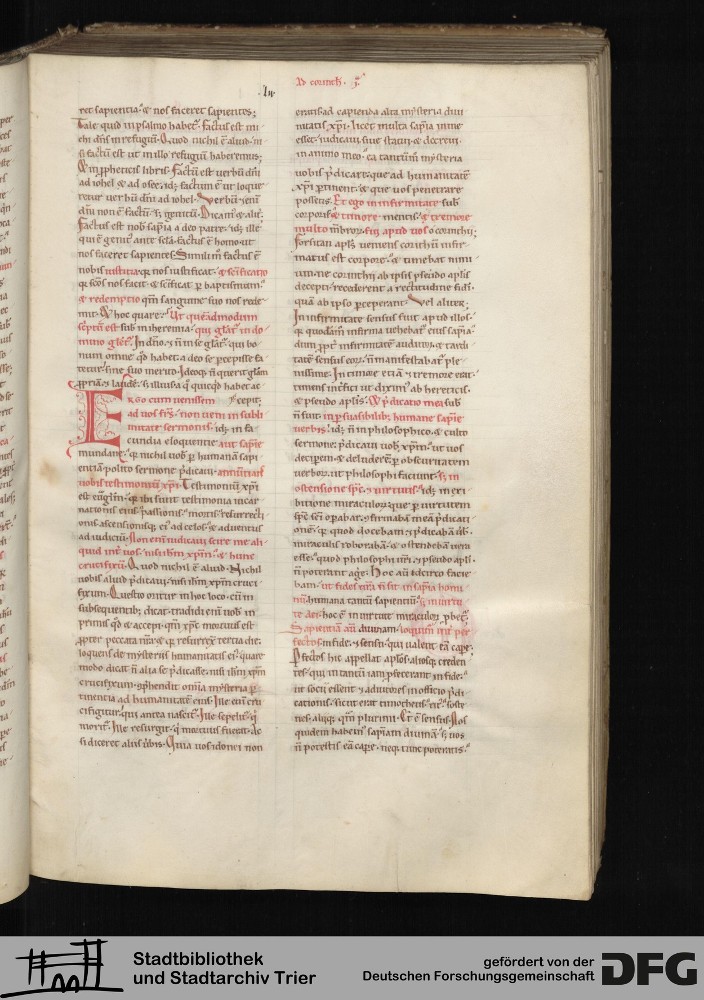 Ad corinth. .i.
ret sapientia. & nos faceret sapientes;
Tale quid in psalmo habet. Factus est mi
chi dns in refugiu. Quod nichil e aliud. ni
si factus est ut in illo refugiu haberemus;
& in propheticis libris. Factu est uerbu dni
ad iohel & ad osee. idē factum e ut loque
retur uerbu dni ad iohel. Verbu enī
dni non e factu. s; genitu. Dicam & alit.
Factus est nob sapia a deo patre. idē ille
qui e genit' ante scla. factus e homo. ut
nos faceret sapientes. Similit factus e
nobis iusticia. qr nos iustificat. & scificatio
qr scos nos facit. & scificat p baptismum.
& redemptio qm sanguine suo nos rede
mit. & hoc quare? Ut quēadmodum
septu est sub iheremia. qui gliat' in do
mino gliet'. In dno. n in se gliet'. qui bo
num omne qd habet. a deo se pcepisse fa
tetur. sine suo merito. Ideoq; n querit glam
ppriā & laudē. s; illius a q quicqd habet ac
Ego cum uenissem cepit;
ad uos frs. non ueni in subli
mitate sermonis. idē in fa
cundia eloquentie. aut sapie
mundane. qr nichil uob p humanā sapi
entiā polito sermone pdicaui. annunciās
nobis testimoniū xpi. Testimoniū xpi
est eugliu. qr ibi sunt testimonia incar
nationis eius. passionis. mortis. resurrecti
onis. ascensionisq; ei' ad celos. & aduentus
ad iudiciu. Non enī iudicaui scire me ali
quid int' uos. nisi ihm xpm. & hunc
crucifixū. Quod nichil e aliud. Nichil
nobis aliud pdicaui. nisi ihm xpm cruci
fixum. Questio oritur in hoc loco. cū in
subsequentib; dicat. tradidi enī uob in
primis qd & accepi. qm xpc mortuus est
ppter peccata nra. & qr resurrex tercia die.
loquens de mysteriis humanitatis ei'. quare
modo dicat n alia se pdicasse. nisi ihm xpm
crucifixum. Cōphendit omia mysteria p
tinentia ad humanitatē eius. Ille enī cru
cifigitur. qui antea nascit'. Ille sepelit'. q
morit'. Ille resurgit. q mortuus fuerit. ac
si diceret aliis ubis. Quia uos idonei non
eratis ad capienda alta mysteria diui
nitatis xpi. licet multa sapia inme
esset. iudicaui. siue statui. & decreui
in animo meo. ea tantum mysteria
uobis pdicare. que ad humanitatē
xpi ptinent. & que uos penetrare
possetis. Et ego in infirmitate sub
corporis & timore mentis. & tremore
multo mbroru. fui apud uos o corinthii;
Forsitan apls ueniens corinthū infir
matus est corpore. & timebat nimi
um. ne corinthii ab ipsis pseudo aplis
decepti. recederent a rectitudine fidi.
quā ab ipso pceperant. Vel aliter;
In infirmitate sensus fuit apud illos.
qr quodam infirma uidebat' eius sapia.
dum ppt' infirmitatē auditoru. & tardi
tatē sensus eoru. n manifestabat' ple
nissime. In timore etiā & tremore erat.
timens infici ut diximus ab hereticis.
& pseudo aplis. Et pdicatio mea sub
n fuit. in persuasibilib; humane sapie
uerbis. idē n in philosophico. & culto
sermone. pdicaui uob xpm. ut uos
deciperem. & deluderē. p obseruitatem
uerboru. ut philosophi faciunt. s; in
ostensione spc. & uirtutis. idē in exi
bitione miraculoru. que p uirtutem
spc sci opabar. & firmabā meā pdicati
onē. qr quod docebam. & pdicabā ubis.
miraculis roborabā. & ostendebā ueru
esse. quod philosophi uri. & pseudo apli
n poterant age. Hoc aū idcirco facie
bam. ut fides ura n sit in sapia homi
nū. humana tantū sapientiū. s; in uirtu
te dei. hoc e in uirtute miraculoru phet.
Sapientiā aū diuinam. loquim' int' per
fectos. in fide. & sensu. qui ualent eā cape.
Pfectos hic appellat aplos. aliosq; creden
tes. qui in tantū iam pfecerant in fide.
ut socii essent. & adiutores in officio pdi
cationis. sicut erat timotheus. tit'. soste
nes. aliiq; qm plurimi. Et e sensus. Nos
quidem habem' sapiam diuinā. s; uos
n potestis eā cape. neq; tunc poteratis.
Stadtbibliothek
und Stadtarchiv Trier
gefördert von der
Deutschen Forschungsgemeinschaft
DFG